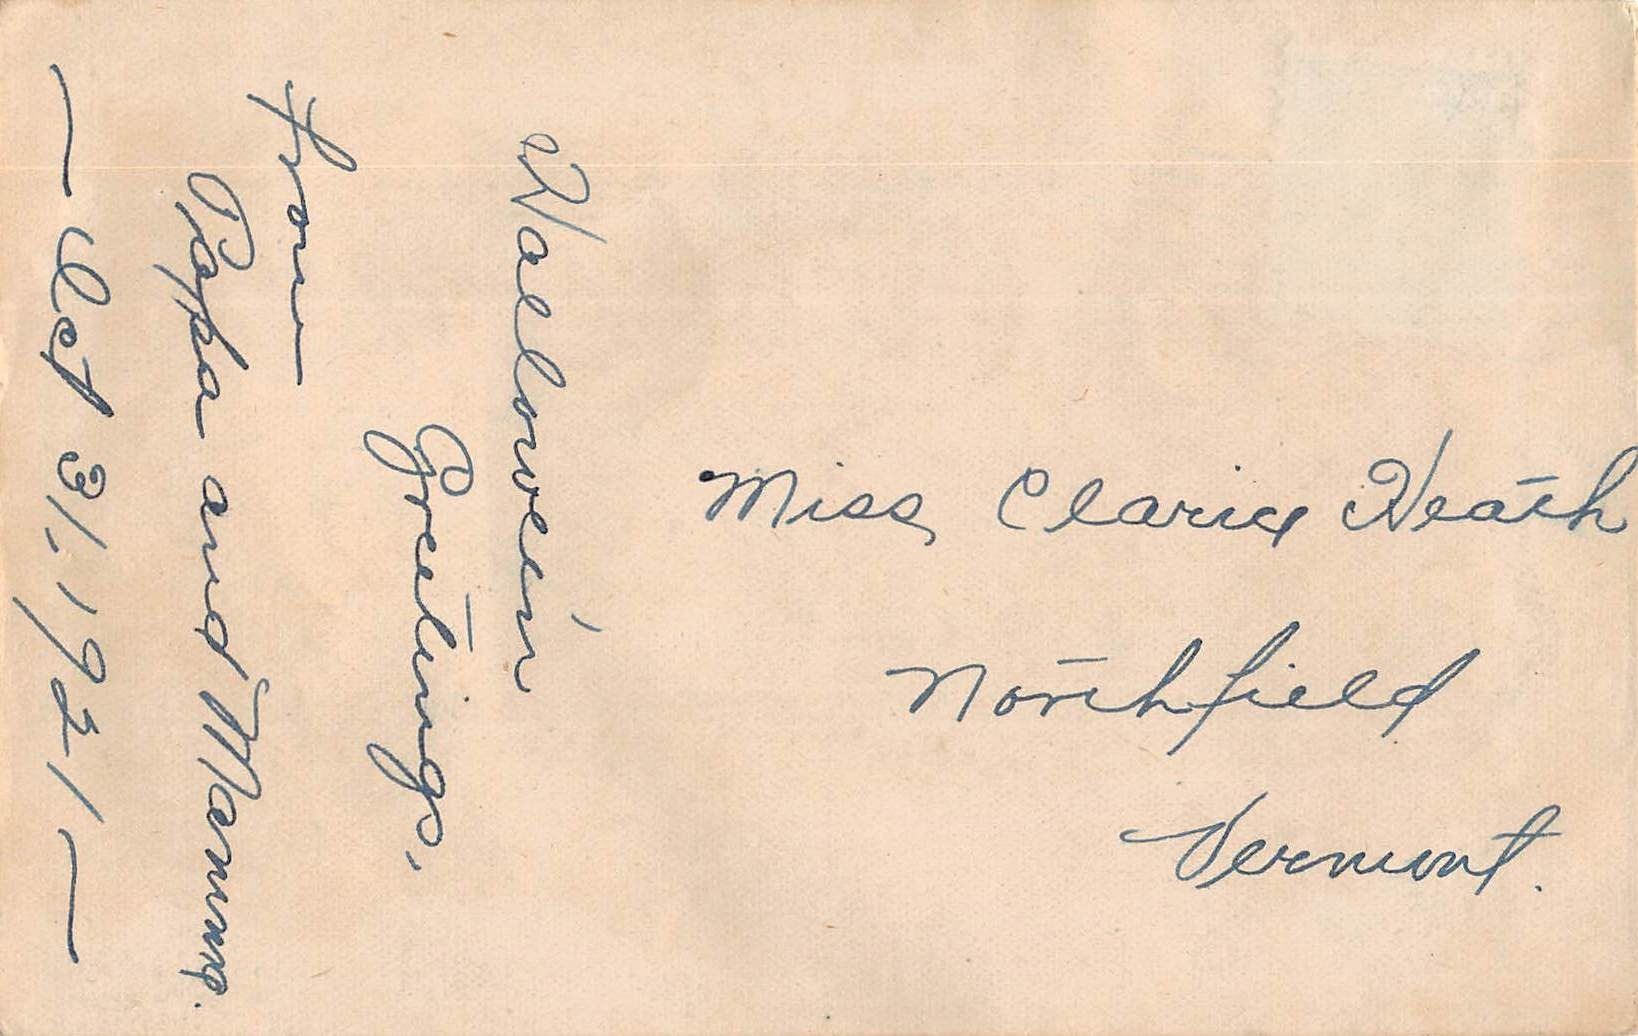 Hallowe'en
Greetings,
from
Pappa and Mamma.
— Oct 31. 1921 —
Miss Clarice Heath
Northfield
Vermont.